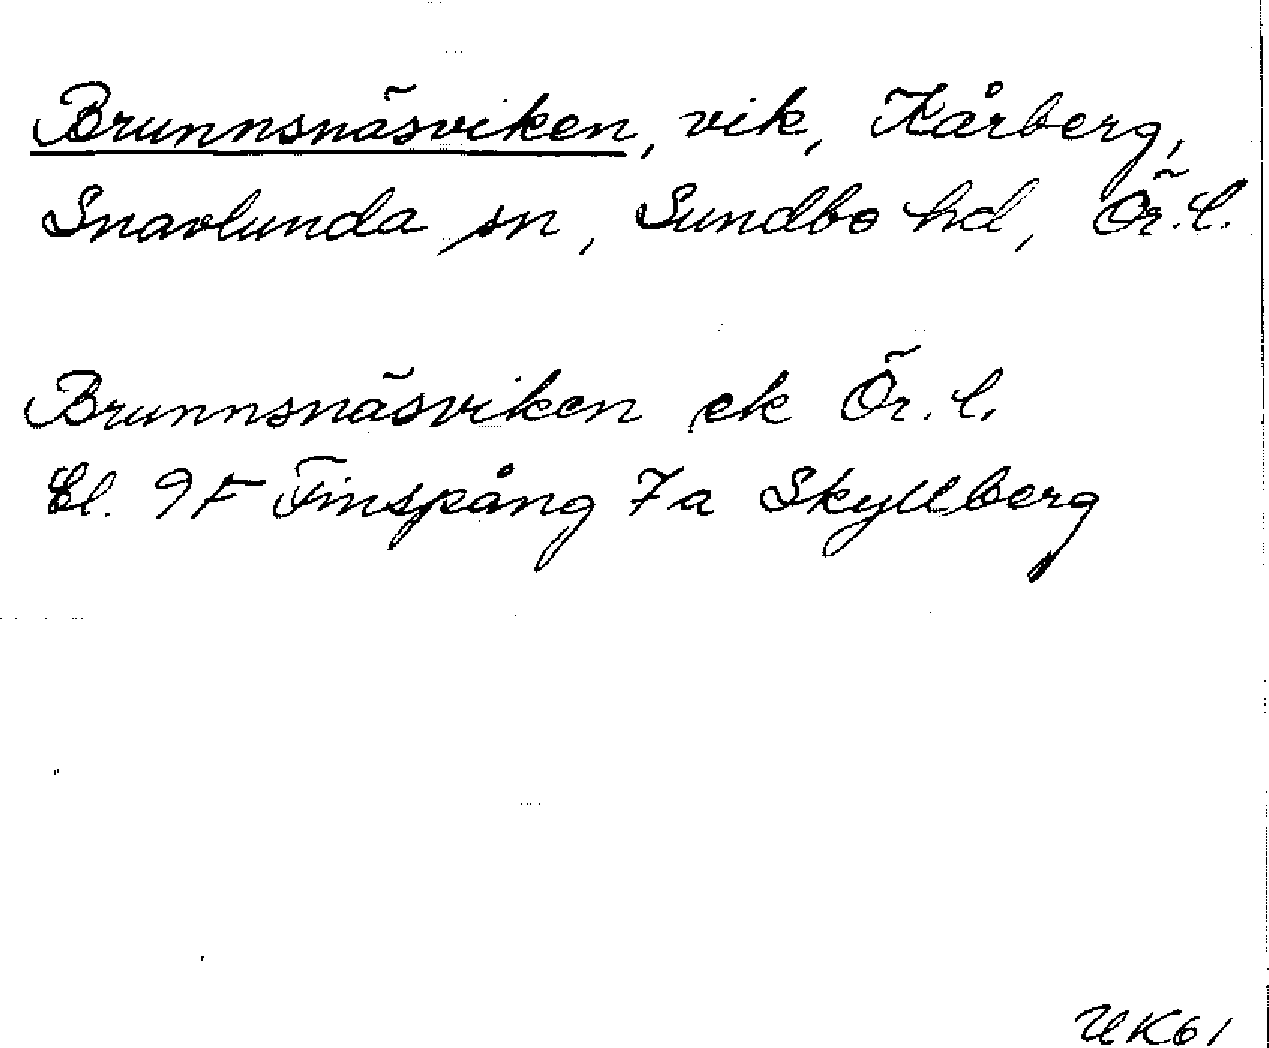 Brunnsnäsviken, vik, Kårberg,
Snavlunda sn, Sundbo hd, Ör. l.
Brunnsnäsviken ek Ör. l.
Bl. 9F Finspång 7a Skyllberg
UK61